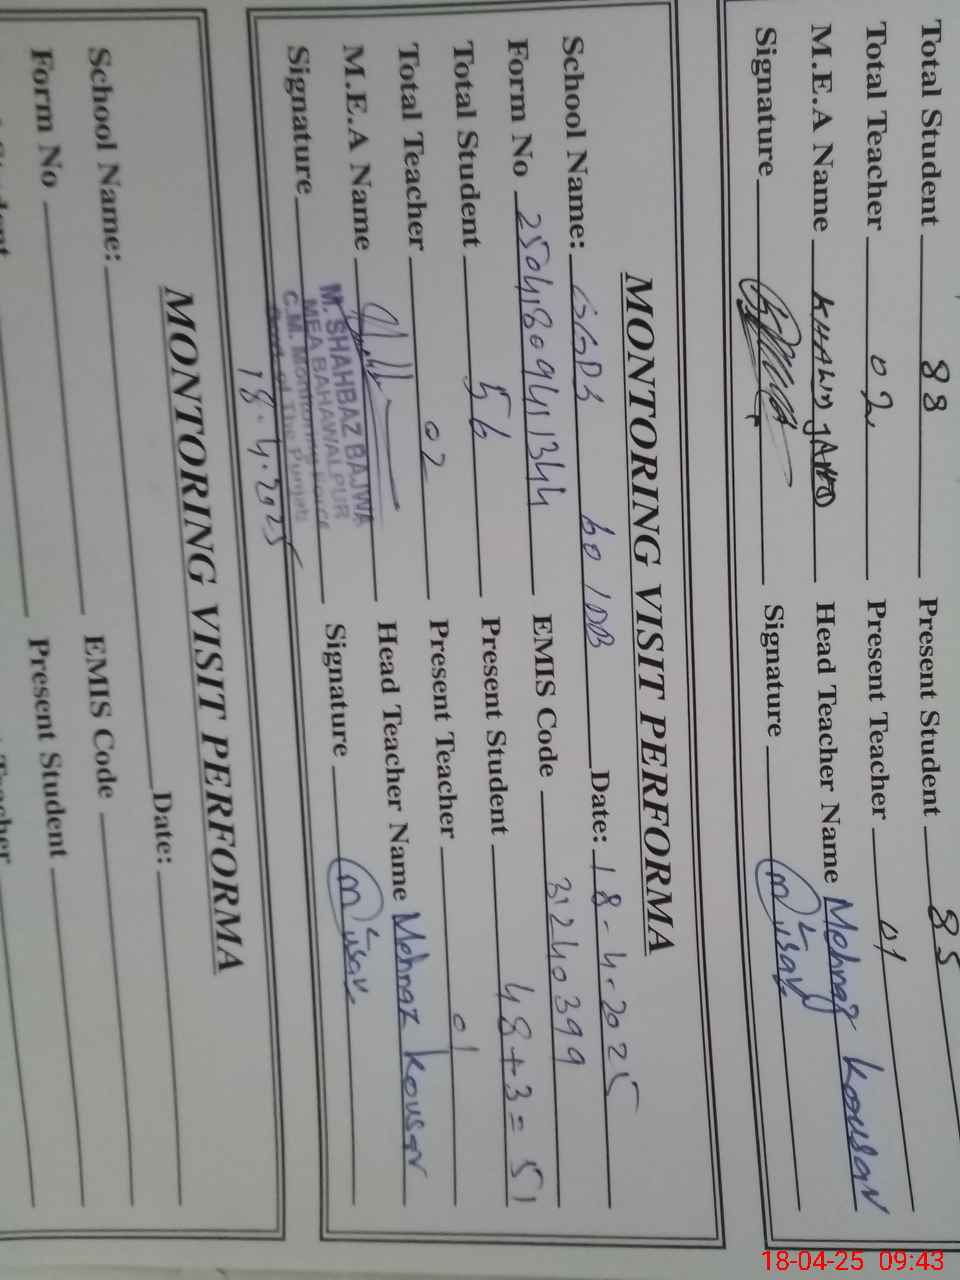 Total Student 88 Present Student 85
Total Teacher 02 Present Teacher 01
M.E.A Name Head Teacher Name Mehnaz Kousar
Signature Signature
MONTORING VISIT PERFORMA
School Name: GGPS 60 /DB Date: 18-4-2025
Form No EMIS Code 31240399
Total Student 56 Present Student 48+3=51
Total Teacher 02 Present Teacher 01
M.E.A Name Head Teacher Name Mehnaz Kousar
M. SHAHBAZ BAJWA
MEA BAHAWALPUR
C.M. Monitoring Force
Govt. of The Punjab
Signature Signature
18.4.2025
MONTORING VISIT PERFORMA
School Name: Date:
Form No EMIS Code
Present Student
18-04-25 09:43